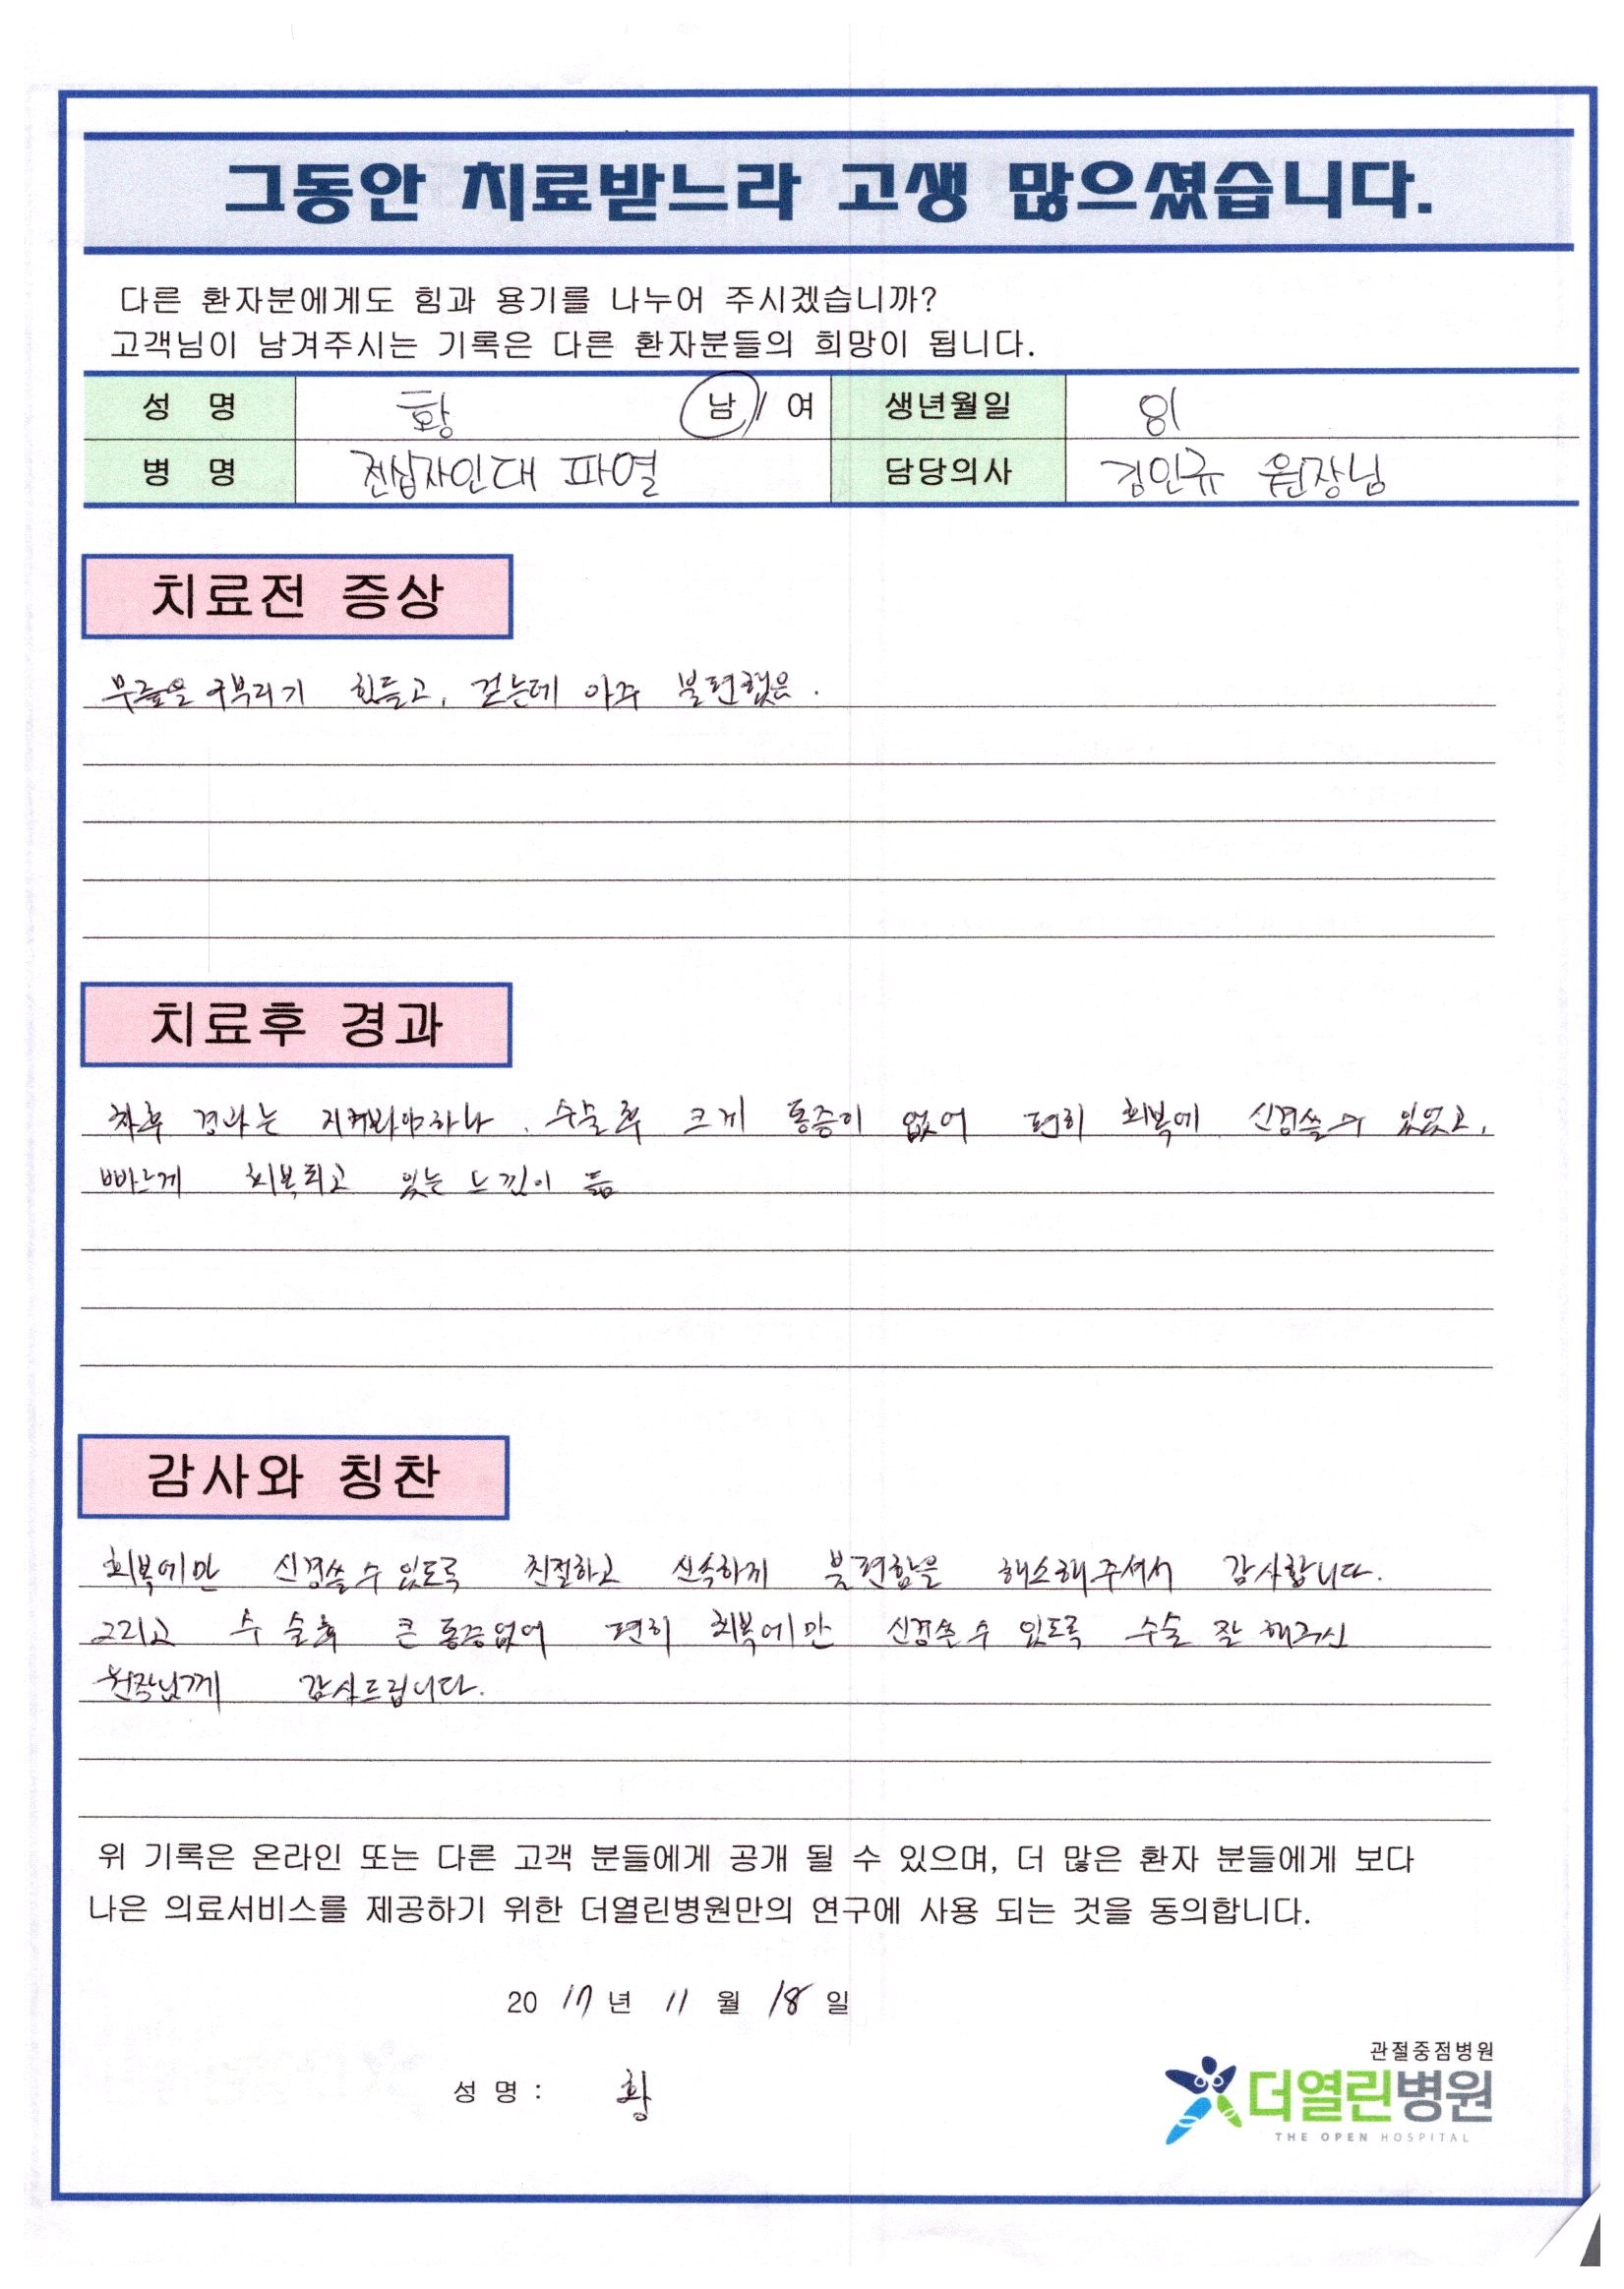 그동안 치료받느라 고생 많으셨습니다.
다른 환자분에게도 힘과 용기를 나누어 주시겠습니까?
고객님이 남겨주시는 기록은 다른 환자분들의 희망이 됩니다.
성 명 황 남 / 여 생년월일 81
병 명 전십자인대 파열 담당의사 김인규 원장님
치료전 증상
무릎을 구부리기 힘들고, 걷는데 아주 불편했음.
치료후 경과
차후 경과는 지켜봐야하나, 수술후 크게 통증이 없어 편히 회복에 신경쓸수 있었고,
빠르게 회복되고 있는 느낌이 듬
감사와 칭찬
회복에만 신경쓸수있도록 친절하고 신속하게 불편함을 해소해주셔서 감사합니다.
그리고 수술후 큰 통증없어 편히 회복에만 신경쓸수 있도록 수술 잘 해주신
원장님께 감사드립니다.
위 기록은 온라인 또는 다른 고객 분들에게 공개 될 수 있으며, 더 많은 환자 분들에게 보다
나은 의료서비스를 제공하기 위한 더열린병원만의 연구에 사용 되는 것을 동의합니다.
2017년 11월 18일
성 명 : 황
관절중점병원
더열린병원
THE OPEN HOSPITAL